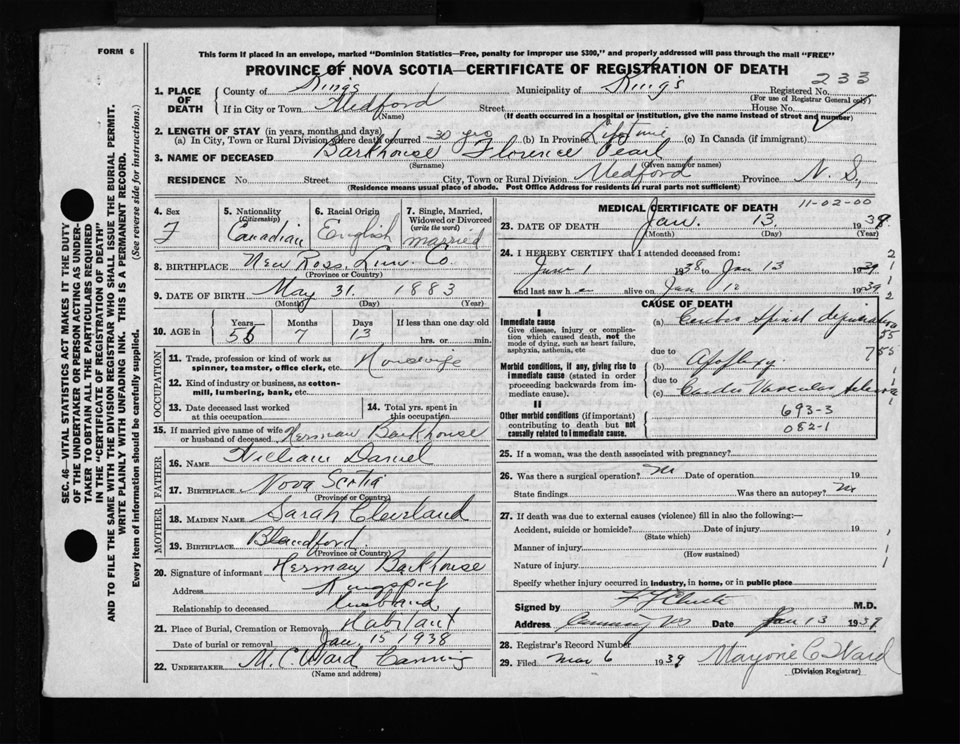 FORM 6
This form if placed in an envelope, marked "Dominion Statistics—Free, penalty for improper use $300," and properly addressed will pass through the mail "FREE"
PROVINCE OF NOVA SCOTIA—CERTIFICATE OF REGISTRATION OF DEATH
233
1. PLACE OF DEATH
County of Kings Municipality of Kings Registered No.
(For use of Registrar General only)
If in City or Town Medford Street House No.
(Name) (If death occurred in a hospital or institution, give the name instead of street and number)
2. LENGTH OF STAY (in years, months and days)
(a) In City, Town or Rural Division where death occurred 30 yrs (b) In Province Lifetime (c) In Canada (if immigrant)
3. NAME OF DECEASED Barkhouse Florence Pearl
(Surname) (Given name or names)
RESIDENCE No. Street City, Town or Rural Division Medford Province N. S.,
(Residence means usual place of abode. Post Office Address for residents in rural parts not sufficient)
4. Sex
F
5. Nationality
(Citizenship)
Canadian
6. Racial Origin
English
7. Single, Married, Widowed or Divorced
(write the word)
married
8. BIRTHPLACE New Ross, Lun. Co.
(Province or Country)
9. DATE OF BIRTH May 31. 1883
(Month) (Day) (Year)
10. AGE in
Years 55
Months 7
Days 13
If less than one day old
hrs. or min.
OCCUPATION
11. Trade, profession or kind of work as spinner, teamster, office clerk, etc. Housewife
12. Kind of industry or business, as cotton-mill, lumbering, bank, etc.
13. Date deceased last worked at this occupation
14. Total yrs. spent in this occupation
15. If married give name of wife or husband of deceased Herman Barkhouse
FATHER
16. NAME William Daniel
17. BIRTHPLACE Nova Scotia
(Province or Country)
MOTHER
18. MAIDEN NAME Sarah Cleveland
19. BIRTHPLACE Blandford
(Province or Country)
20. Signature of informant Herman Barkhouse
Address Kingsport
Relationship to deceased husband
21. Place of Burial, Cremation or Removal Habitant
Date of burial or removal Jan. 15 1938
22. UNDERTAKER M. C. Ward Canning
(Name and address)
MEDICAL CERTIFICATE OF DEATH 11-02-00
23. DATE OF DEATH Jan. 13. 1939
(Month) (Day) (Year)
24. I HEREBY CERTIFY that I attended deceased from:
June 1 1938 to Jan 13 1939
and last saw her alive on Jan 12 1939
CAUSE OF DEATH
I
Immediate cause
Give disease, injury or complication which caused death, not the mode of dying, such as heart failure, asphyxia, asthenia, etc
(a) Cerebro Spinal
due to
(b) Apoplexy
Morbid conditions, if any, giving rise to immediate cause (stated in order proceeding backwards from immediate cause).
due to
(c) Cardio Vascular
II
Other morbid conditions (if important) contributing to death but not causally related to immediate cause.
693-3
082-1
25. If a woman, was the death associated with pregnancy?
26. Was there a surgical operation? No Date of operation 19
State findings Was there an autopsy? No
27. If death was due to external causes (violence) fill in also the following:—
Accident, suicide or homicide? Date of injury 19
(State which)
Manner of injury
(How sustained)
Nature of injury
Specify whether injury occurred in industry, in home, or in public place
Signed by M.D.
Address Canning NS Date Jan 13 1939
28. Registrar's Record Number
29. Filed Mar 6 1939 Marjorie C Ward
(Division Registrar)
SEC. 46—VITAL STATISTICS ACT MAKES IT THE DUTY
OF THE UNDERTAKER OR PERSON ACTING AS UNDERTAKER TO OBTAIN ALL THE PARTICULARS REQUIRED
IN THE "CERTIFICATE OF REGISTRATION OF DEATH"
AND TO FILE THE SAME WITH THE DIVISION REGISTRAR WHO SHALL ISSUE THE BURIAL PERMIT.
WRITE PLAINLY WITH UNFADING INK. THIS IS A PERMANENT RECORD.
Every item of information should be carefully supplied. (See reverse side for instructions.)